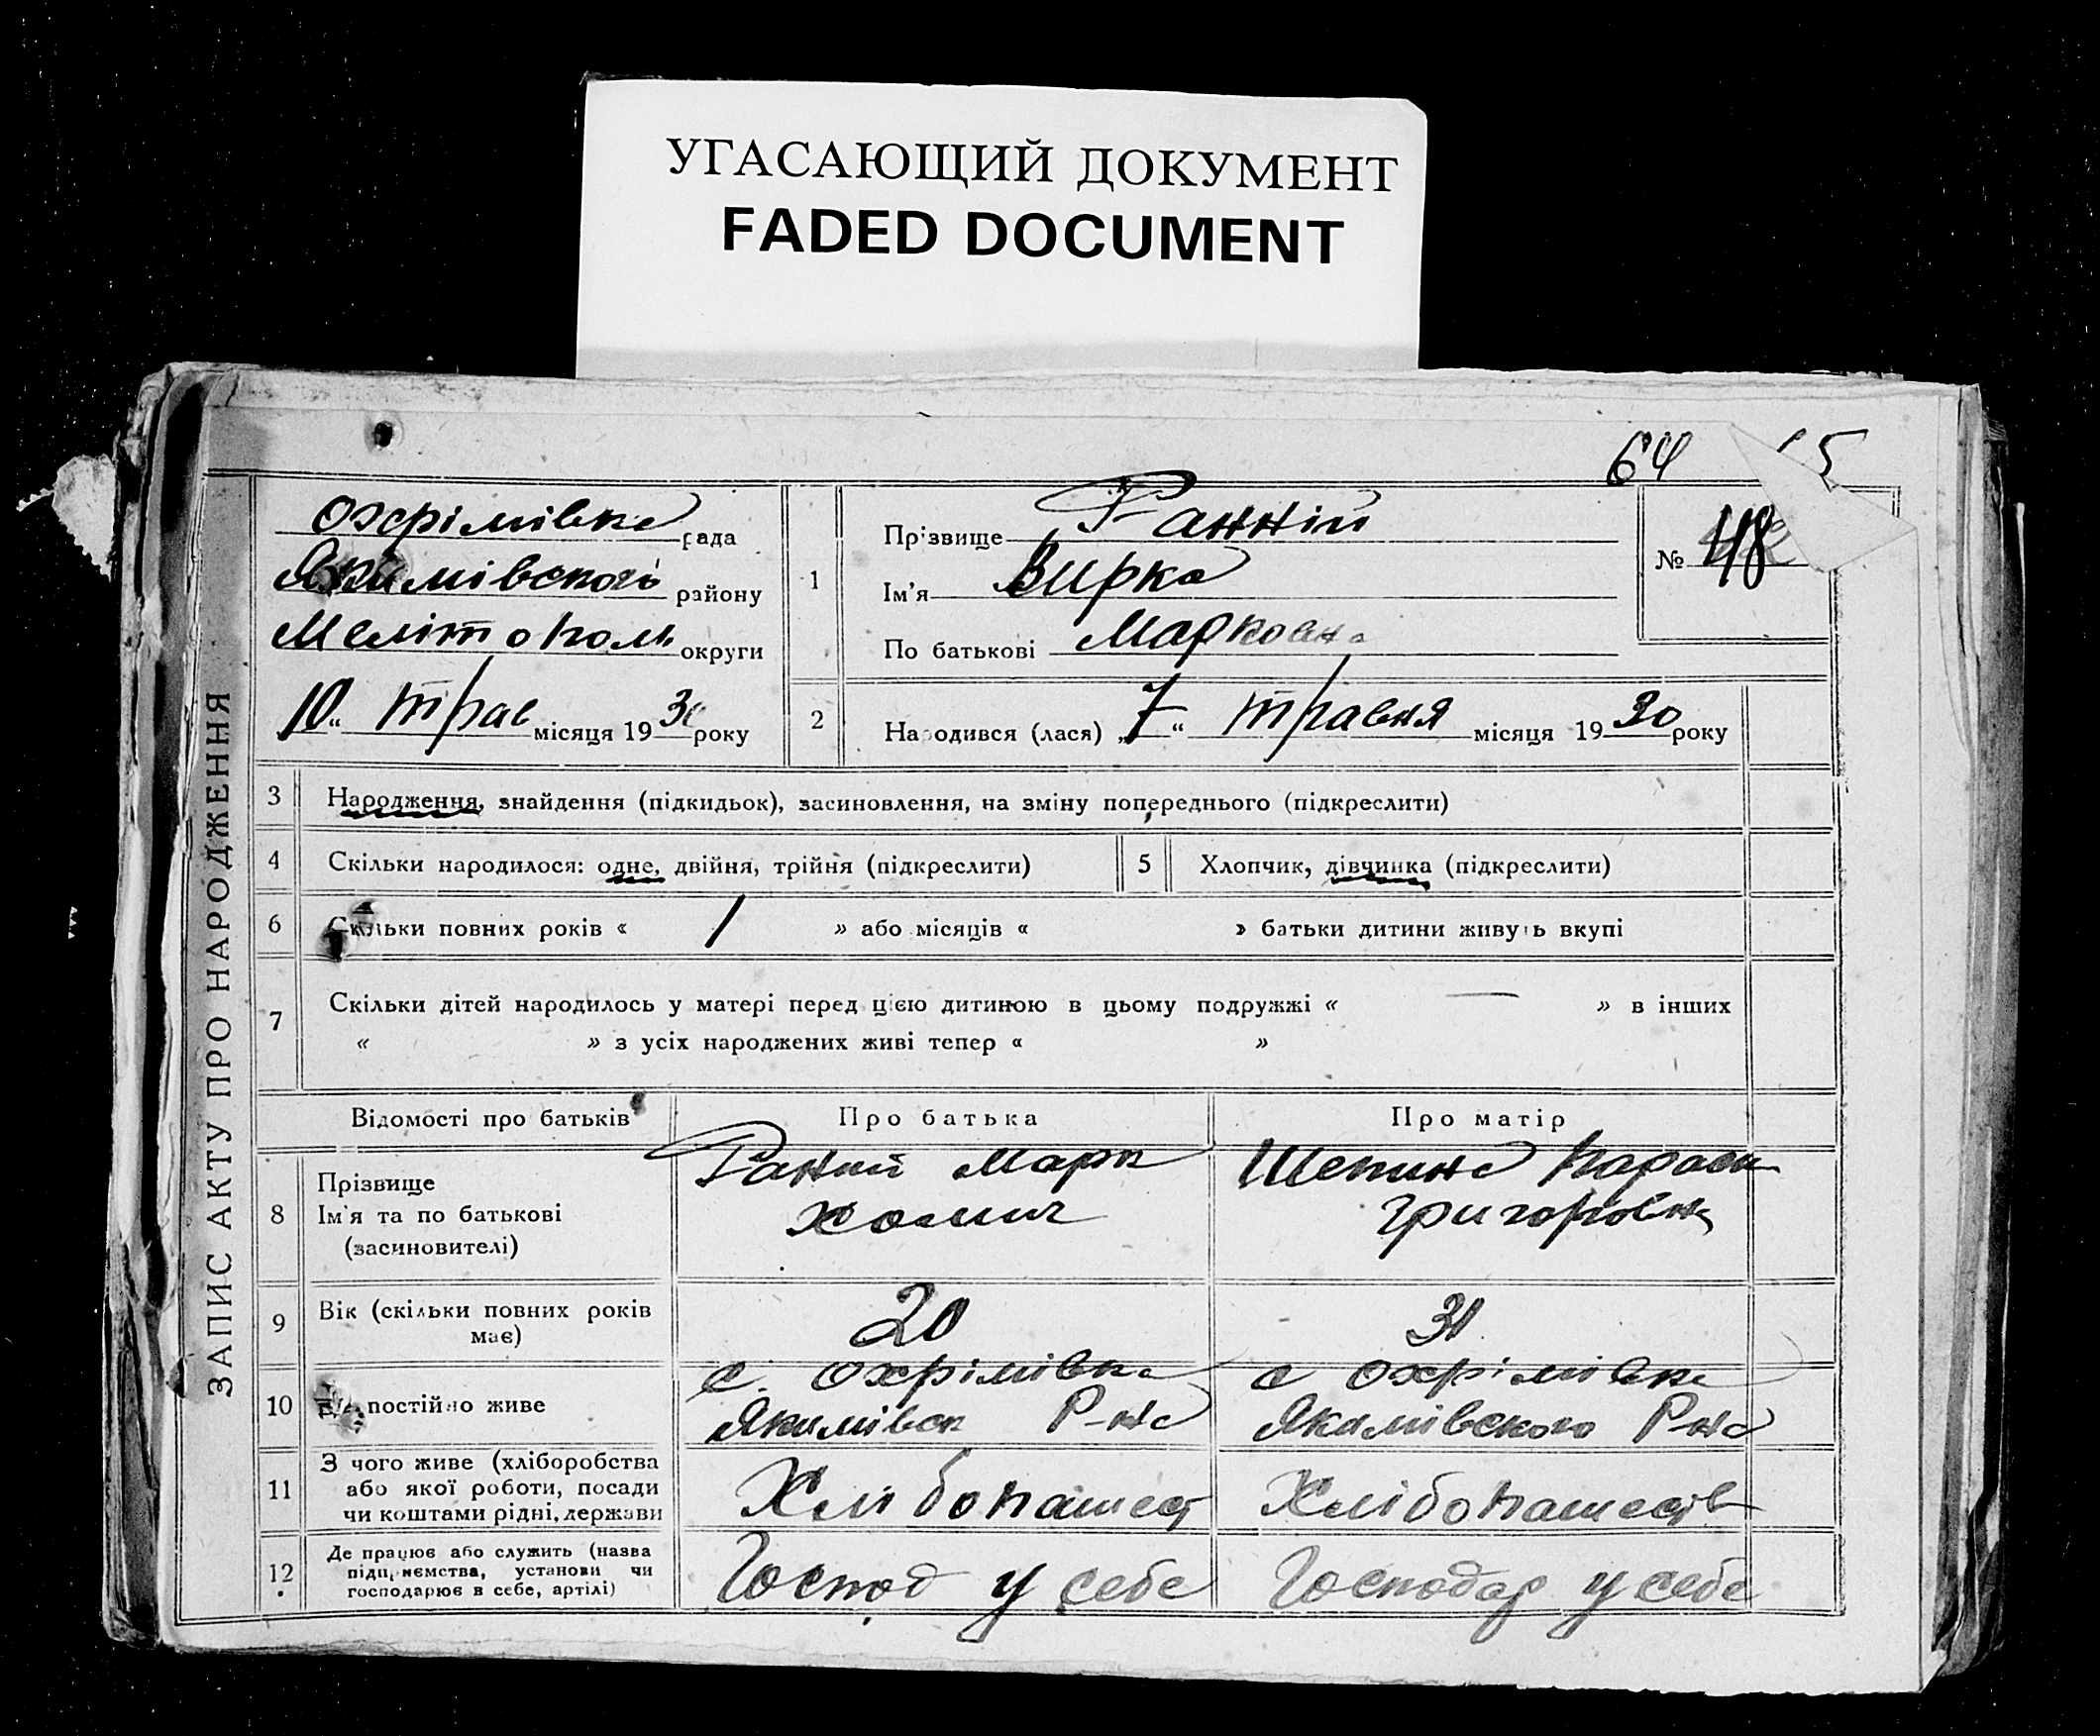 УГАСАЮЩИЙ ДОКУМЕНТ
FADED DOCUMENT
64 5
ЗАПИС АКТУ ПРО НАРОДЖЕННЯ
Охрімівка рада
Якимівського району
Мелітополь округи
10 “ трав місяця 1930 року
1
Прізвище Ранній
Ім'я Вирка
По батькові Марковна
№ 48
2 Народився (лася) „7“ травня місяця 1930 року
3 Народження, знайдення (підкидьок), засиновлення, на зміну попереднього (підкреслити)
4 Скільки народилося: одне, двійня, трійня (підкреслити) 5 Хлопчик, дівчинка (підкреслити)
6 Скільки повних років « 1 » або місяців « » батьки дитини живуть вкупі
7 Скільки дітей народилось у матері перед цією дитиною в цьому подружжі « — » в інших
« » з усіх народжених живі тепер « »
Відомості про батьків Про батька Про матір
8 Прізвище
Ім'я та по батькові
(засиновителі)
Раний Марк
Хомич
Шепина Параск
Григоровна
9 Вік (скільки повних років
має)
20
31
10 Де постійно живе
с. Охрімівка
Якимівск Р-на
с Охрімівка
Якимівского Р-на
11 З чого живе (хліборобства
або якої роботи, посади
чи коштами рідні, держави
Хлібопашест
Хлібопашеств
12 Де працює або служить (назва
підприємства, установи чи
господарює в себе, артілі)
Господ у себе
Господар у себе